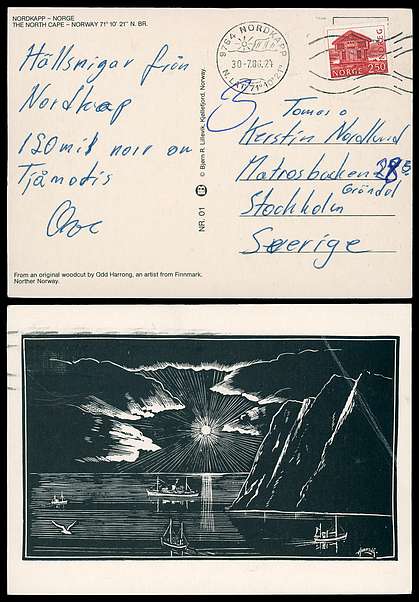 NORDKAPP – NORGE
THE NORTH CAPE – NORWAY 71° 10' 21'' N. BR.
Hällsnigar från
Nordkap
150 mil norr om
9764 NORDKAPP
N. 71°10'21"
NORGE 250
NR. 01
© Bjørn R. Lillevik, Kjøllefjord, Norway.
Tomas o
Kerstin Nordlund
Matrosbacken
Gröndal
Stockholm
Sverige
From an original woodcut by Odd Harrong, an artist from Finnmark.
Norther Norway.